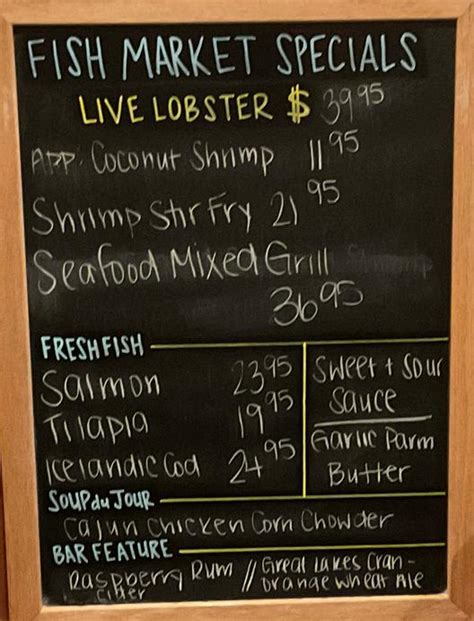 FISH MARKET SPECIALS
LIVE LOBSTER $ 39.95
APP: Coconut Shrimp 11 95
Shrimp Stir Fry 21 95
Seafood Mixed Grill
36 95
FRESH FISH
Salmon 23 95
Tilapia 19 95
Icelandic Cod 24 95
Sweet + Sour
Sauce
Garlic Parm
Butter
SOUP du JOUR
Cajun Chicken Corn Chowder
BAR FEATURE
Raspberry Rum
Cider
// Great Lakes Cran-
Orange Wheat Ale